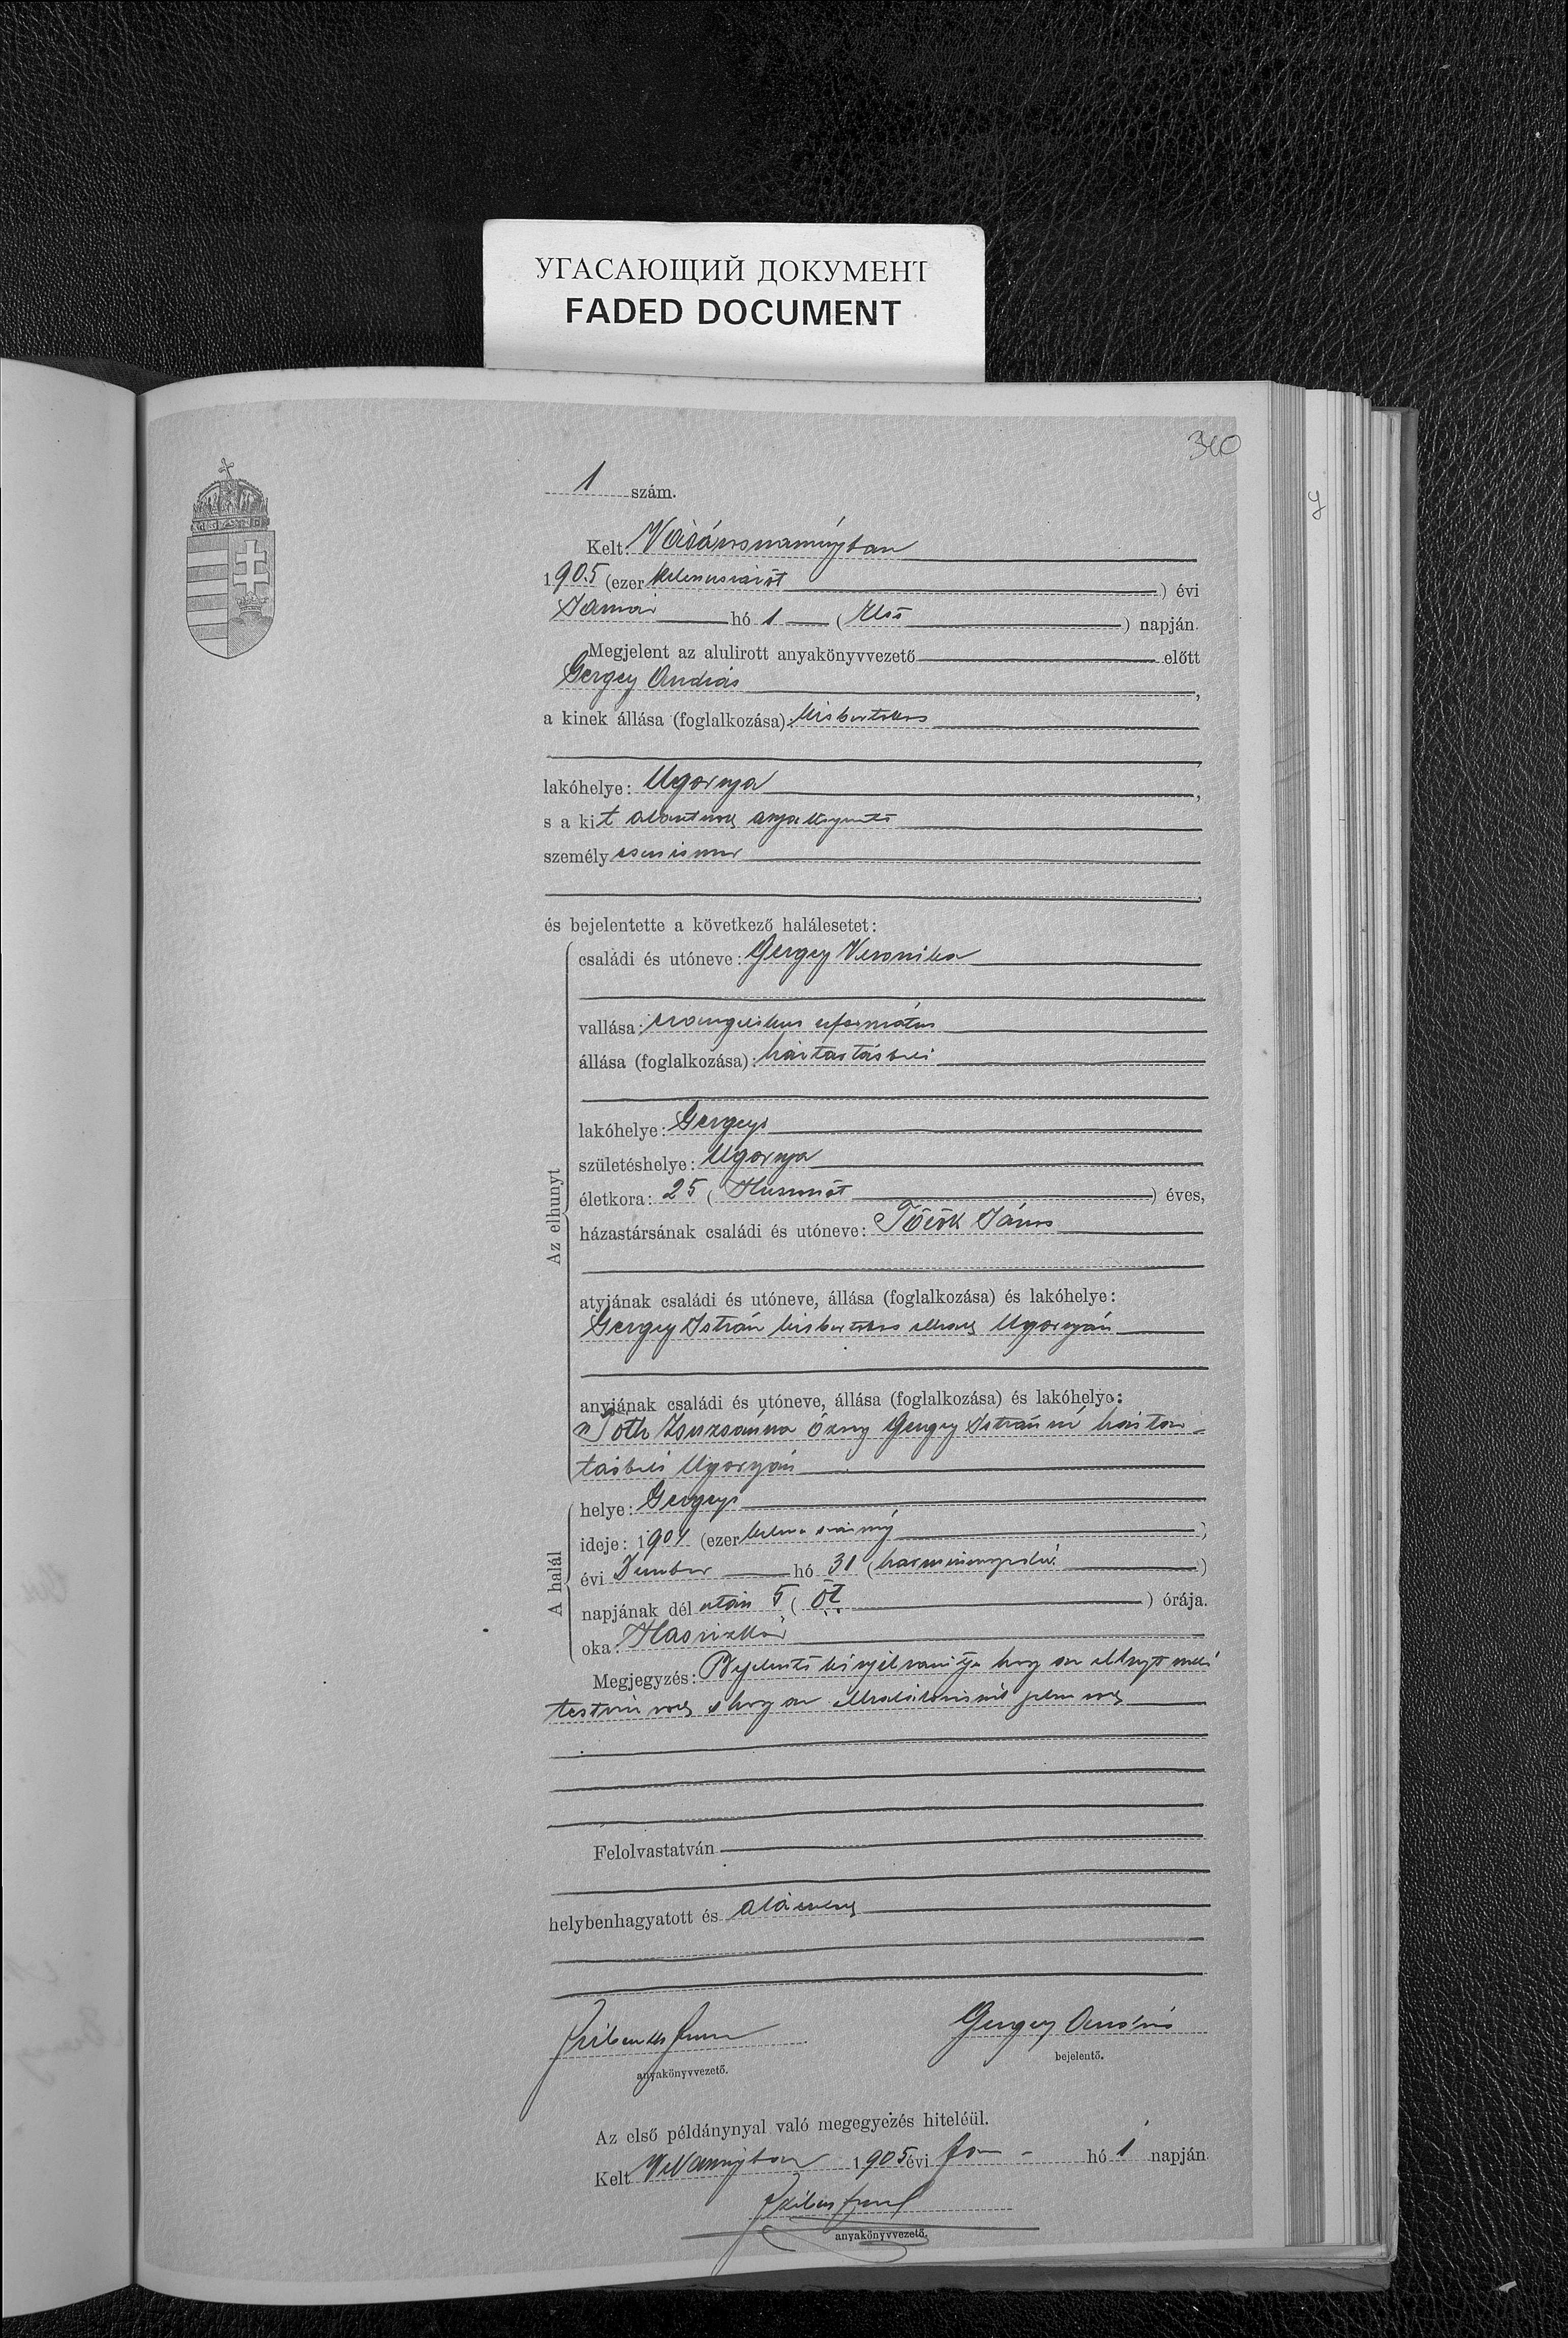 УГАСАЮЩИЙ ДОКУМЕНТ
FADED DOCUMENT
340
1 szám.
Kelt Vásárosnaményban
1905 (ezer kilencszázöt) évi
Január hó 1 (Első) napján.
Megjelent az alulirott anyakönyvvezető előtt
Gergey András,
a kinek állása (foglalkozása): kisbirtokos
lakóhelye: Ugornya,
s a kit alantirott anyakönyvvezető
személyesen ismer
és bejelentette a következő halálesetet:
Az elhunyt
családi és utóneve: Gergey Veronika
vallása: evangelikus református
állása (foglalkozása): háztartásbeli
lakóhelye: Gergelyi
születéshelye: Ugornya
életkora: 25 (Huszonöt) éves,
házastársának családi és utóneve: Török János
atyjának családi és utóneve, állása (foglalkozása) és lakóhelye:
Gergey István kisbirtokos Ugornyán
anyjának családi és utóneve, állása (foglalkozása) és lakóhelye:
Tóth Zsuzsánna özvegy Gergey Istvánné háztar-
tásbeli Ugornyán
A halál
helye: Gergelyi
ideje: 1904 (ezer kilenczszáznégy)
évi December hó 31 (harminczegyedik)
napjának dél után 5 (öt) órája.
oka:
Megjegyzés: Bejelentő kinyilvánítja hogy az elhunyt
testvére volt s hogy az elhalálozásnál jelen volt
Felolvastatván
helybenhagyatott és aláíratott
anyakönyvvezető.
Gergey András
bejelentő.
Az első példánynyal való megegyezés hiteléül.
Kelt VNaményban 1905 évi Jan hó 1 napján
anyakönyvvezető.